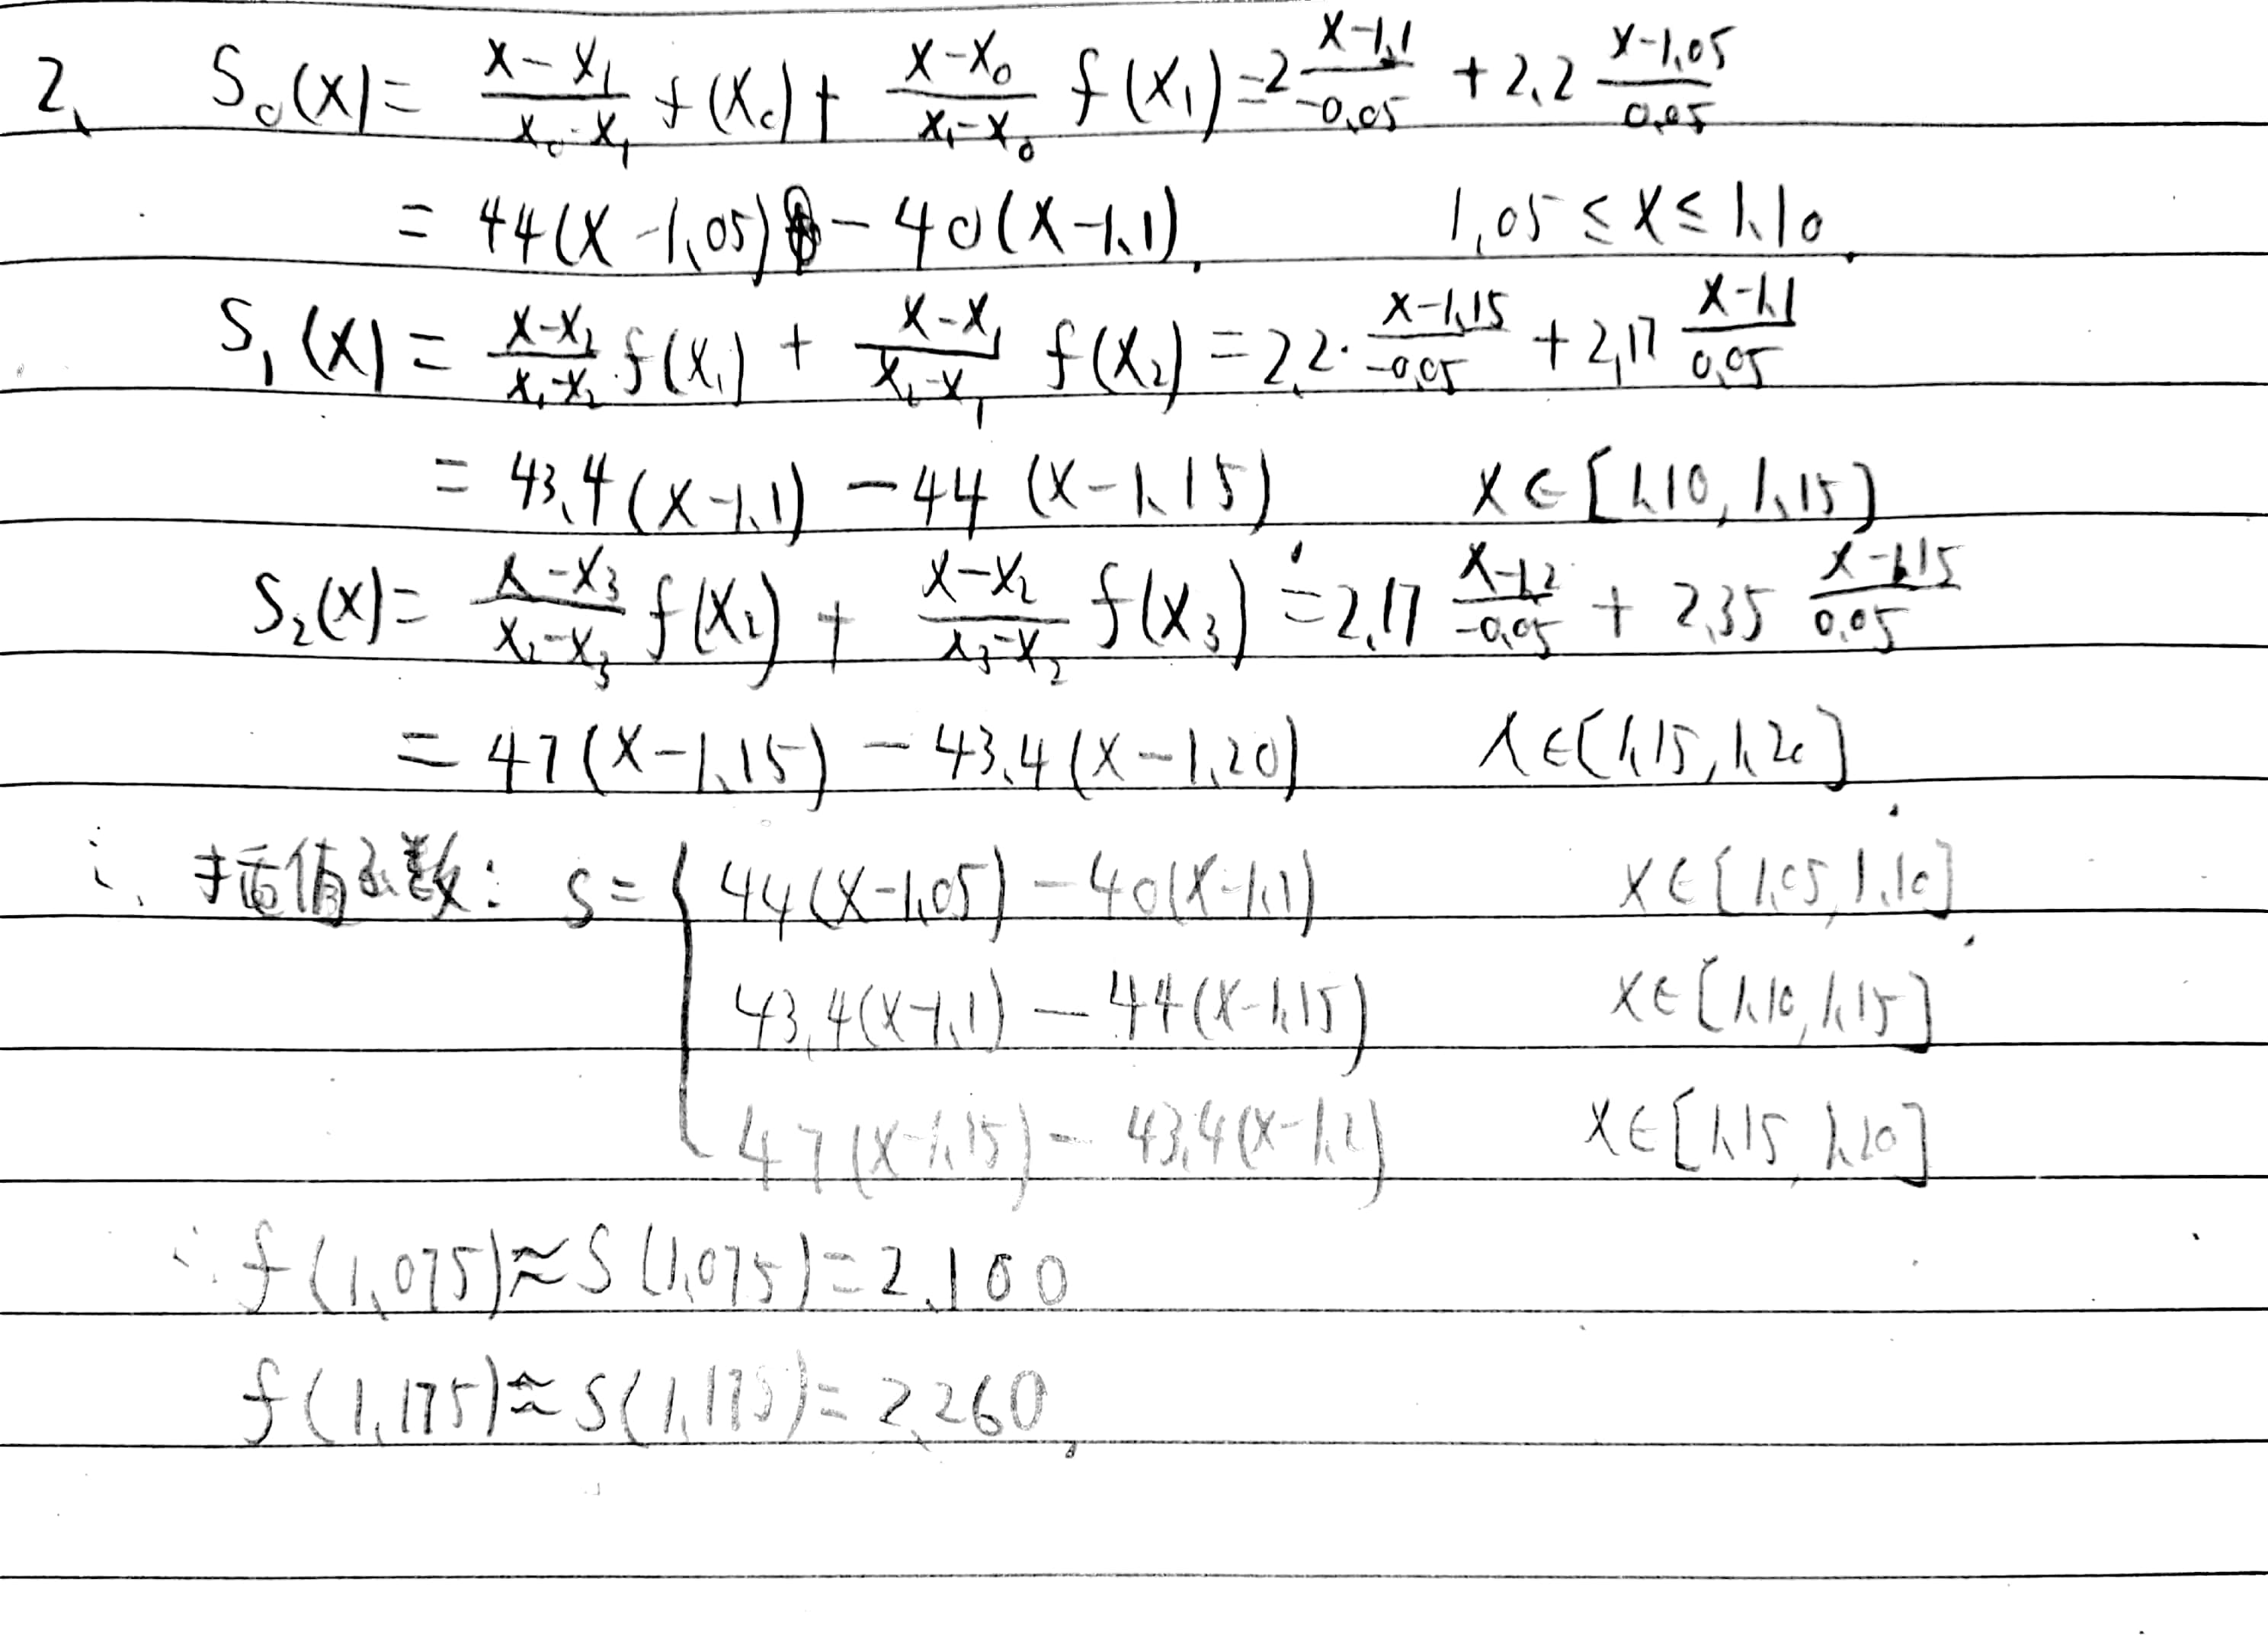 2. S₀(x) = \frac{x-x₁}{x₀-x₁} f(x₀) + \frac{x-x₀}{x₁-x₀} f(x₁) = 2 \frac{x-1.1}{-0.05} + 2.2 \frac{x-1.05}{0.05}
= 44(x-1.05) - 40(x-1.1). 1.05 ≤ x ≤ 1.10.
S₁(x) = \frac{x-x₂}{x₁-x₂} f(x₁) + \frac{x-x₁}{x₂-x₁} f(x₂) = 2.2 · \frac{x-1.15}{-0.05} + 2.17 \frac{x-1.1}{0.05}
= 43.4(x-1.1) - 44(x-1.15) x∈[1.10, 1.15]
S₂(x) = \frac{x-x₃}{x₂-x₃} f(x₂) + \frac{x-x₂}{x₃-x₂} f(x₃) = 2.17 \frac{x-1.2}{-0.05} + 2.35 \frac{x-1.15}{0.05}
= 47(x-1.15) - 43.4(x-1.20) x∈[1.15, 1.20]
∴ 插值函数: S = { 44(x-1.05) - 40(x-1.1) x∈[1.05, 1.10]
43.4(x-1.1) - 44(x-1.15) x∈[1.10, 1.15]
47(x-1.15) - 43.4(x-1.2) x∈[1.15, 1.20]
∴ f(1.075) ≈ S(1.075) = 2.100
f(1.175) ≈ S(1.175) = 2.260.